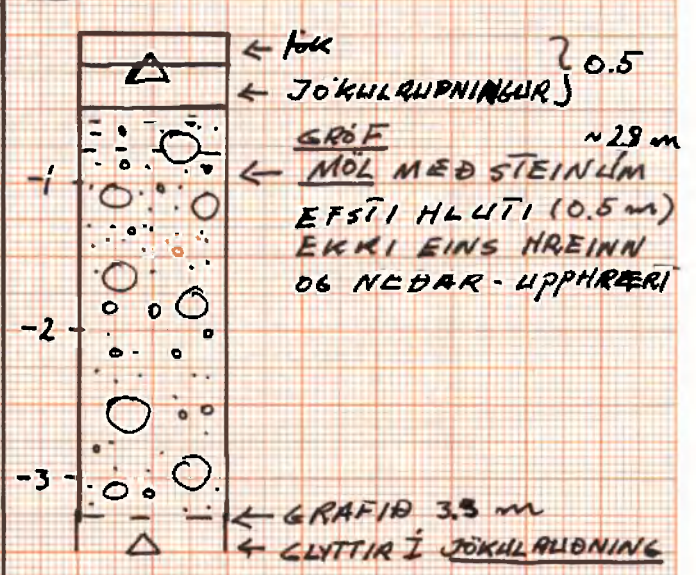 ← fok
0.5
← JÖKULRUÐNINGUR
GRÓF ~2.8 m
-1 ← MÖL MEÐ STEINUM
EFSTI HLUTI (0.5 m)
EKKI EINS HREINN
OG NEÐAR - UPPHRÆRT
-2
-3
← GRAFIÐ 3.3 m
← GLYTTIR Í JÖKULRUÐNING